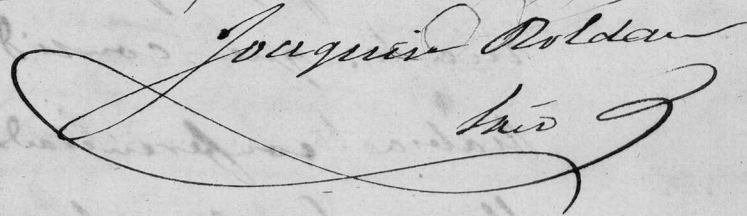 Joaquin Roldan
Srio